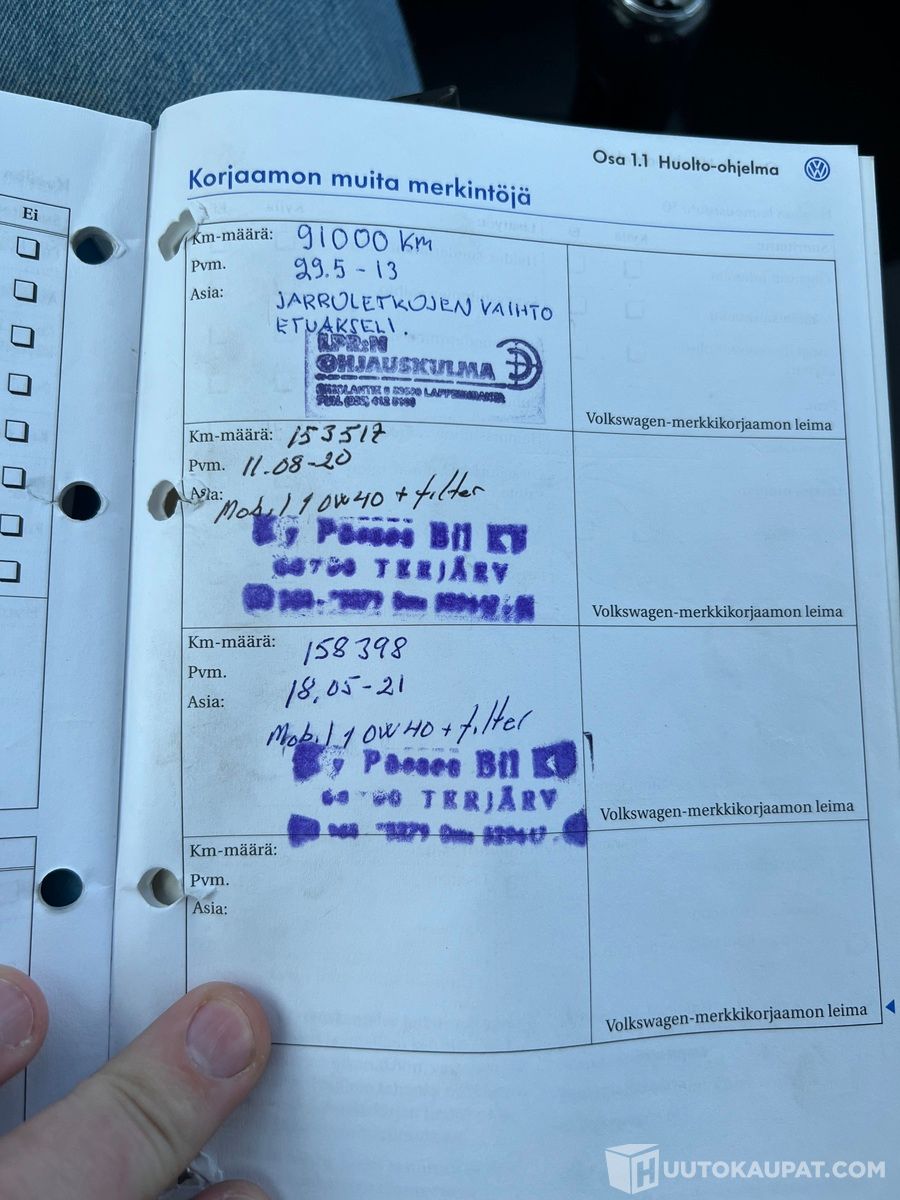 Ei
Osa 1.1 Huolto-ohjelma
Korjaamon muita merkintöjä
Km-määrä: 91000 KM
Pvm. 29.5-13
Asia: JARRULETKOJEN VAIHTO
ETUAKSELI.
LPR:N
OHJAUSKULMA
Volkswagen-merkkikorjaamon leima
Km-määrä: 153517
Pvm. 11.08-20
Asia:
Mobil 1 0W40 + filter
Ky Bil KY
TERJÄRV
Volkswagen-merkkikorjaamon leima
Km-määrä: 158398
Pvm. 18.05-21
Asia:
Mobil 1 0W40 + filter
Ky Bil KY
TERJÄRV
Volkswagen-merkkikorjaamon leima
Km-määrä:
Pvm.
Asia:
Volkswagen-merkkikorjaamon leima
HUUTOKAUPAT.COM